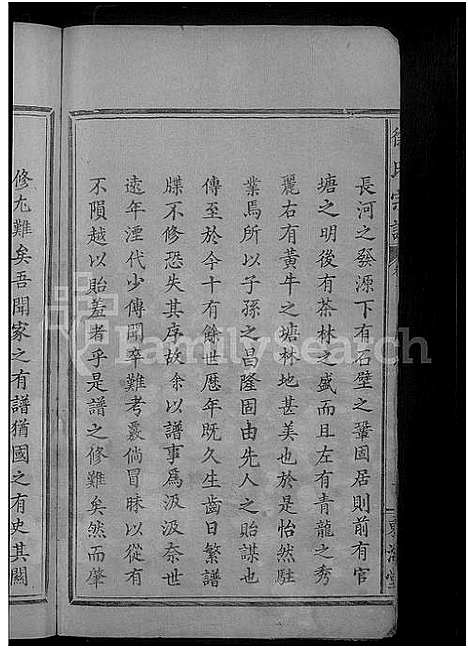 徐氏宗譜
長河之發源下有石壁之鞏固居則前有官
塘之明後有茶林之盛而且左有青龍之秀
麗右有黃牛之塘林地甚美也於是怡然駐
業焉所以子孫之昌隆固由先人之貽謀也
傳至於今十有餘世歷年既久生齒日繁譜
牒不修恐失其序故余以譜事爲汲汲奈世
遠年湮代少傳聞卒難考覈倘冒昧以從有
不隕越以貽羞者乎是譜之修難矣然而肇
修尤難矣吾聞家之有譜猶國之有史其闕
東海堂
FamilySearch